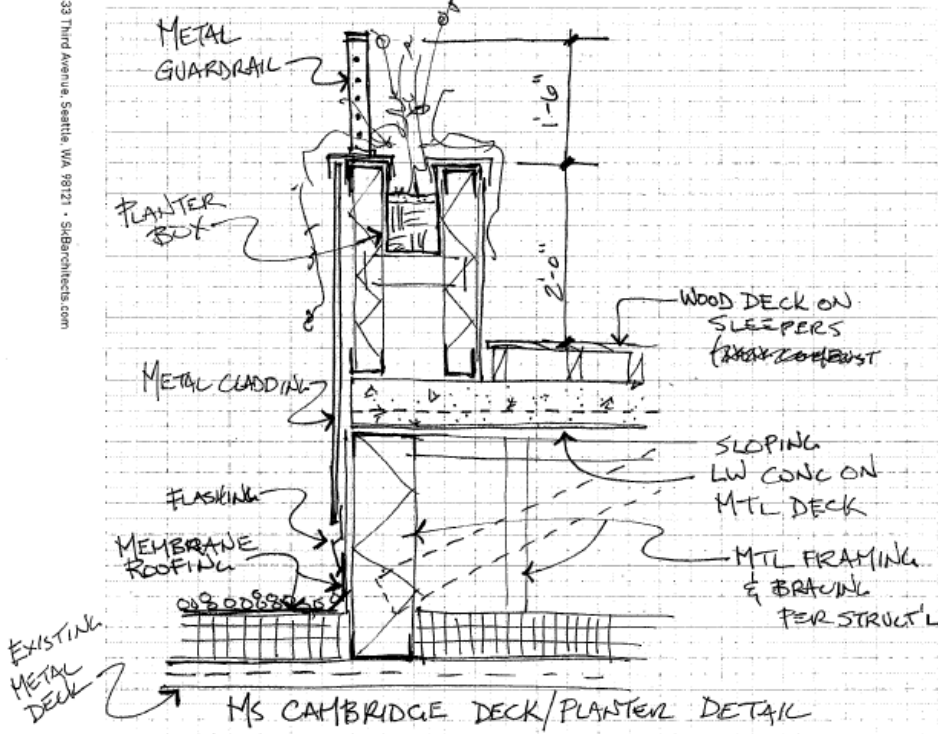 33 Third Avenue, Seattle, WA 98121 • SkBarchitects.com
METAL
GUARDRAIL
1'-6"
PLANTER
BOX
2'-0"
WOOD DECK ON
SLEEPERS
METAL CLADDING
SLOPING
LW CONC ON
MTL DECK
FLASHING
MEMBRANE
ROOFING
MTL FRAMING
& BRACING
PER STRUCT'L
EXISTING
METAL
DECK
MS CAMBRIDGE DECK/PLANTER DETAIL